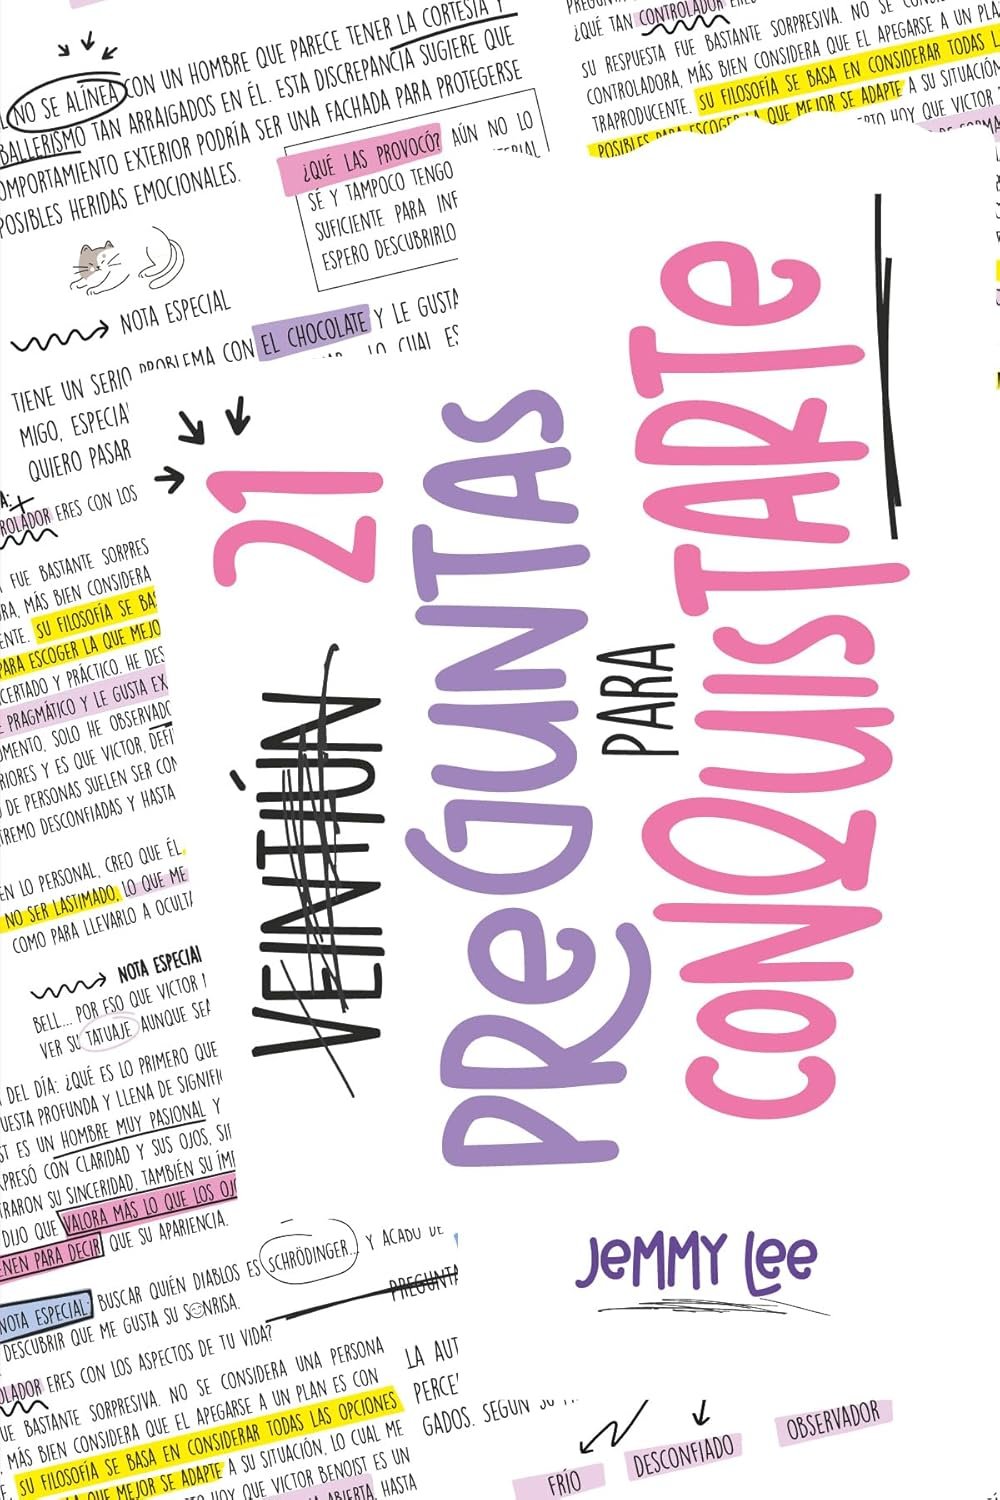 NO SE ALÍNEA CON UN HOMBRE QUE PARECE TENER LA CORTESÍA Y
BALLERISMO TAN ARRAIGADOS EN ÉL. ESTA DISCREPANCIA SUGIERE QUE
OMPORTAMIENTO EXTERIOR PODRÍA SER UNA FACHADA PARA PROTEGERSE
POSIBLES HERIDAS EMOCIONALES.
¿QUÉ LAS PROVOCÓ? AÚN NO LO
SÉ Y TAMPOCO TENGO
SUFICIENTE PARA INF
ESPERO DESCUBRIRLO
NOTA ESPECIAL
TIENE UN SERIO PROBLEMA CON EL CHOCOLATE Y LE GUSTA
MIGO, ESPECIA
QUIERO PASAR
¿QUÉ TAN CONTROLADOR ERES
SU RESPUESTA FUE BASTANTE SORPRESIVA. NO SE CONSI
CONTROLADORA, MÁS BIEN CONSIDERA QUE EL APEGARSE A UN PLA
TRAPRODUCENTE. SU FILOSOFÍA SE BASA EN CONSIDERAR TODAS L
POSIBLES PARA ESCOGER LA QUE MEJOR SE ADAPTE A SU SITUACIÓN
HOY QUE VICTOR
VEINTIÚN 21
PREGUNTAS
PARA
CONQUISTARTE
JEMMY LEE
ROLADOR ERES CON LOS
FUE BASTANTE SORPRES
RA, MÁS BIEN CONSIDERA
ENTE. SU FILOSOFÍA SE BA
PARA ESCOGER LA QUE MEJO
CERTADO Y PRÁCTICO. HE DES
E PRAGMÁTICO Y LE GUSTA EX
OMENTO, SOLO HE OBSERVADO
RIORES Y ES QUE VICTOR, DEFI
O DE PERSONAS SUELEN SER CON
TREMO DESCONFIADAS Y HASTA
EN LO PERSONAL, CREO QUE ÉL
NO SER LASTIMADO, LO QUE ME
COMO PARA LLEVARLO A OCULT
NOTA ESPECIAL
BELL... POR ESO QUE VICTOR
VER SU TATUAJE AUNQUE SEA
DEL DÍA: ¿QUÉ ES LO PRIMERO QUE
UESTA PROFUNDA Y LLENA DE SIGNIFI
ST ES UN HOMBRE MUY PASIONAL Y
XPRESÓ CON CLARIDAD Y SUS OJOS, SI
TRARON SU SINCERIDAD. TAMBIÉN SU ÍM
DIJO QUE VALORA MÁS LO QUE LOS OJO
ENEN PARA DECIR QUE SU APARIENCIA.
NOTA ESPECIAL: BUSCAR QUIÉN DIABLOS ES SCHRÖDINGER... Y ACABO DE
DESCUBRIR QUE ME GUSTA SU SONRISA.
PREGUNTA
OLADOR ERES CON LOS ASPECTOS DE TU VIDA?
UE BASTANTE SORPRESIVA. NO SE CONSIDERA UNA PERSONA
MÁS BIEN CONSIDERA QUE EL APEGARSE A UN PLAN ES CON
SU FILOSOFÍA SE BASA EN CONSIDERAR TODAS LAS OPCIONES
LA QUE MEJOR SE ADAPTE A SU SITUACIÓN, LO CUAL ME
HOY QUE VICTOR BENOIST ES UN
ABIERTA, HASTA
LA AUT
PERCE
GADOS. SEGÚN SU
FRÍO
DESCONFIADO
OBSERVADOR